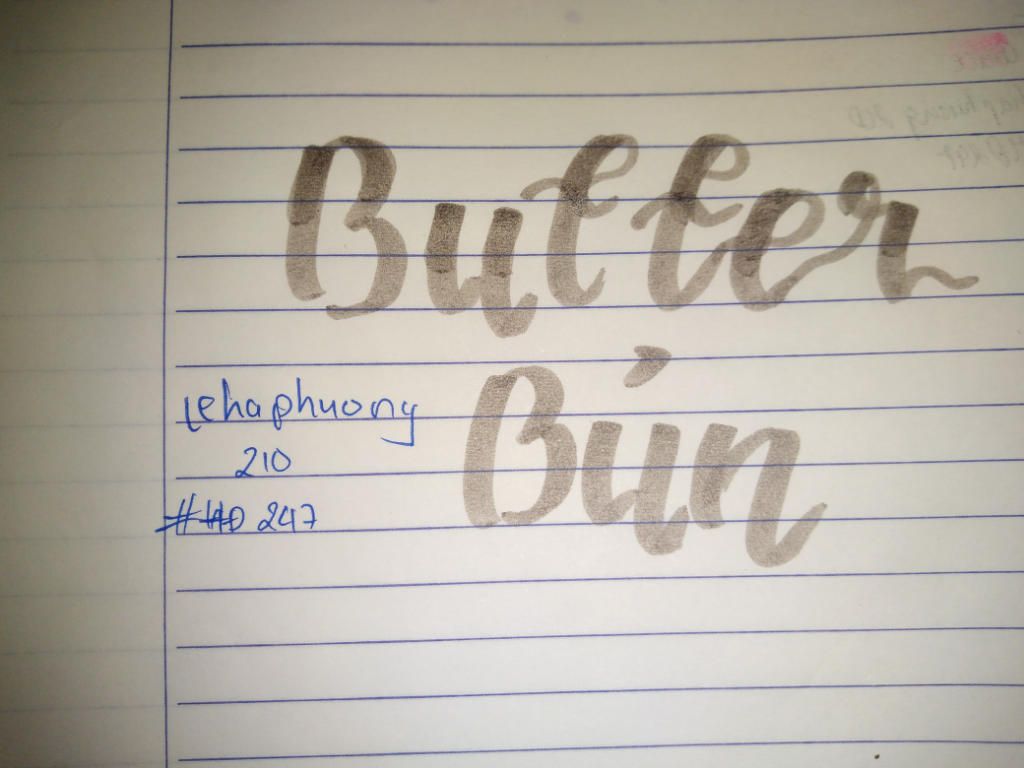 Butter
Bún
lehaphuong
210
#HD 247